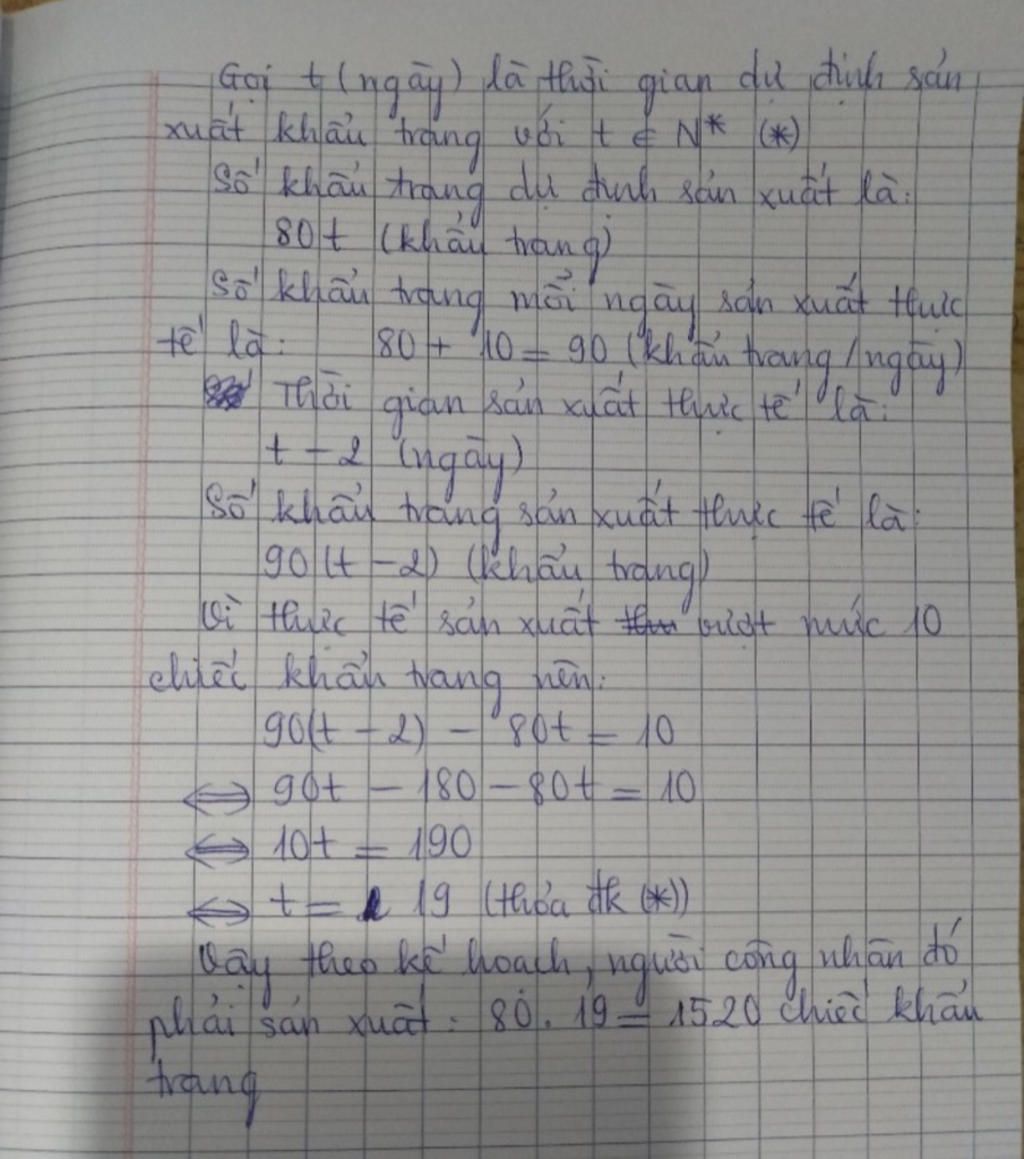 Gọi t (ngày) là thời gian dự định sản
xuất khẩu trang với t ∈ N* (*)
Số khẩu trang dự định sản xuất là:
80t (khẩu trang)
Số khẩu trang mỗi ngày sản xuất thực
tế là: 80 + 10 = 90 (khẩu trang/ngày)
Thời gian sản xuất thực tế là:
t - 2 (ngày)
Số khẩu trang sản xuất thực tế là:
90(t - 2) (khẩu trang)
Vì thực tế sản xuất vượt mức 10
chiếc khẩu trang nên:
90(t - 2) - 80t = 10
⇔ 90t - 180 - 80t = 10
⇔ 10t = 190
⇔ t = 19 (thỏa đk (*))
Vậy theo kế hoạch, người công nhân đó
phải sản xuất: 80 . 19 = 1520 chiếc khẩu
trang